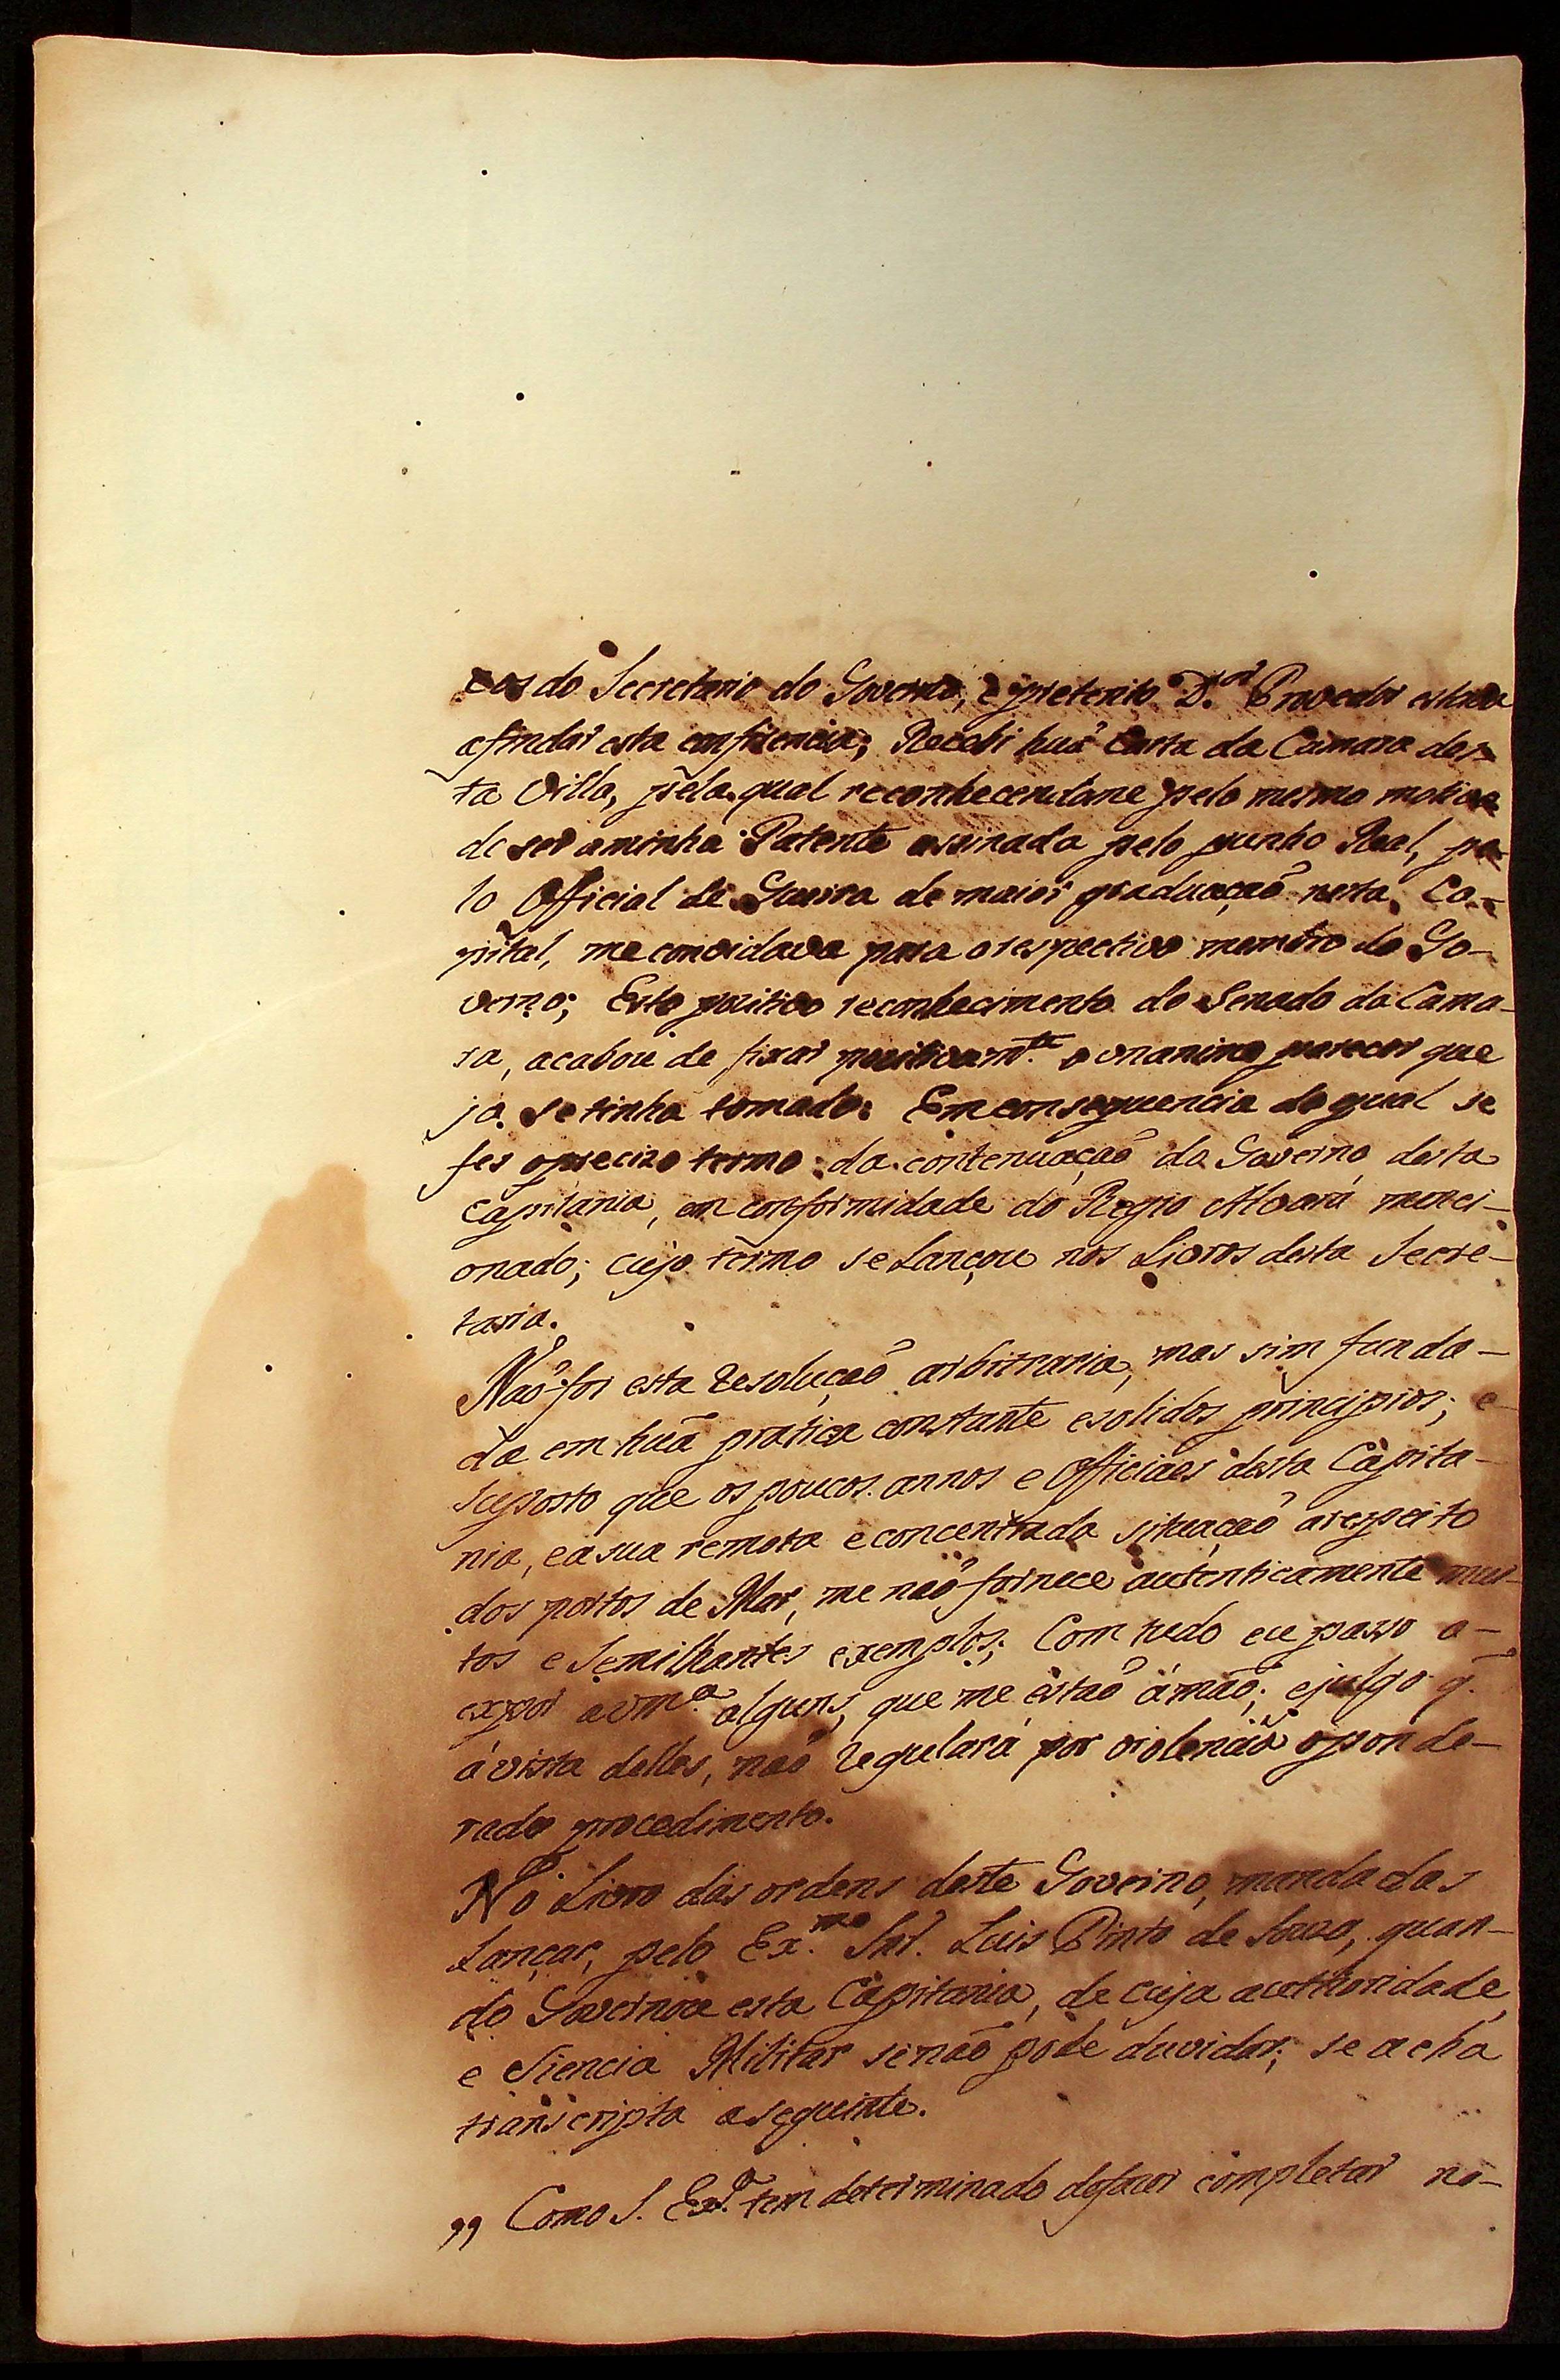 cos do Secretario do Governo, e preterito D.or Provedor estava
afindar esta confirencia; Recebi huã Carta da Camara des-
ta Villa, pela qual reconhecendome pelo mesmo motivo
de ser aminha Patente assinada pelo punho Real, pe-
lo Official de Guerra de maior graduaçaõ nesta Ca-
pital, me convidava para orespectivo membro do Go-
verno; Este pozitivo reconhecimento do Senado da Cama-
ra, acabou de fixar pozitivam.te o unanime parecer que
já se tinha tomado: Em consequencia do qual se
fes oprecizo termo da contenuaçaõ do Governo desta
Capitania, em conformidade do Regio Alvará menci-
onado; cujo termo se Lançou nos Livros desta Secre-
taria.
Naõ foi esta Resoluçaõ arbitraria, mas sim funda-
da em huã pratica constante esolidos principios; e
suposto que os poucos annos e Officiaes desta Capita-
nia, easua remota econcentrada situaçaõ arespeito
dos portos de Mar, me naõ fornece autenticamente mui-
tos e Semilhantes exemplos; Com tudo eu passo a-
expor avm.ce alguns, que me estaõ ámaõ; ejulgo q.
ávista delles, naõ Regulará por violencia oponde-
rado procedimento.
No Livro das ordens deste Governo, mandadas
Lançar, pelo Ex.mo Snr. Luis Pinto de Souza, quan-
do Governou esta Capitania, de cuja authoridade,
e Siencia Militar senaõ pode duvidar; se acha
transcripta aseguinte.
,, Como S. Ex.a tem determinado defazer completar no-